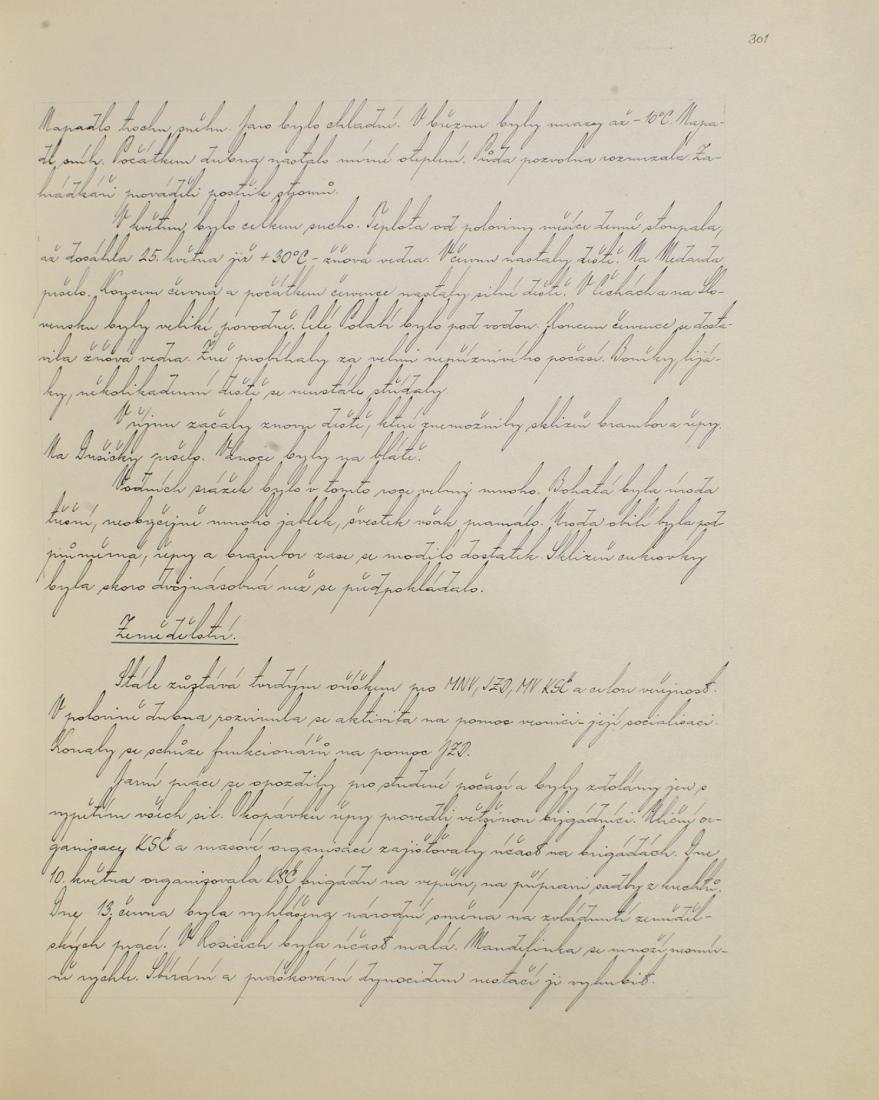 301
Napadlo trochu sněhu. Jaro bylo chladné. V březnu byly mrazy až -10°C. Napa-
dl sníh. Počátkem dubna nastalo mírné oteplení. Půda pozvolna rozmrzala. Za-
hrádkáři prováděli postřik stromů.
V květnu bylo celkem sucho. Teplota od poloviny měsíce denně stoupala,
až dosáhla 25. května již +30°C - žňová vedra. V červnu nastaly deště. Na Medarda
pršelo. Koncem června a počátkem července nastaly silné deště. V Čechách a na Slo-
vensku byly veliké povodně. Celé Polabí bylo pod vodou. Koncem července se dosta-
vila žňová vedra. Žně probíhaly za velmi nepříznivého počasí. Bouřky, liják-
ky, několikadenní deště se neustále střídaly.
V říjnu začaly znovu deště, které znemožnily sklizeň brambor a řepy.
Na Dušičky pršelo. Vánoce byly na blátě.
Vodních srážek bylo v tomto roce velmi mnoho. Bohatá byla úroda
třešní, neobyčejně mnoho jablek, švestek však pramálo. Úroda obilí byla pod
průměrná, řepy a brambor zase se urodilo dostatek. Sklizeň cukrovky
byla skoro dvojnásobná než se předpokládalo.
Zemědělství.
Stále zůstává tvrdým oříškem pro MNV, JZD, MV KSČ a celou veřejnost.
V polovině dubna rozvinula se aktivita na pomoc vesnici - její socialisaci.
Konaly se schůze funkcionářů na pomoc JZD.
Jarní práce se opozdily pro studené počasí a byly zdolány jen s
vypětím všech sil. Okopávku řepy provedli většinou brigádníci. Uliční or-
ganisace KSČ a masové organisace zajišťovaly účast na brigádách. Dne
10. května organisovala KSČ brigádu na vepřín, na přípravu sadby z krechtů.
Dne 13. června byla vyhlášena národní směna na zvládnutí zeměděl-
ských prací. V Rosicích byla účast malá. Mandelinka se množí nesmír-
ně rychle. Sbírání a práškování dynocidem nestačí ji vyhubit.